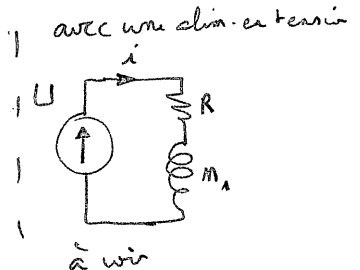 avec une alim. en tension
i
U
R
M₁
à voir